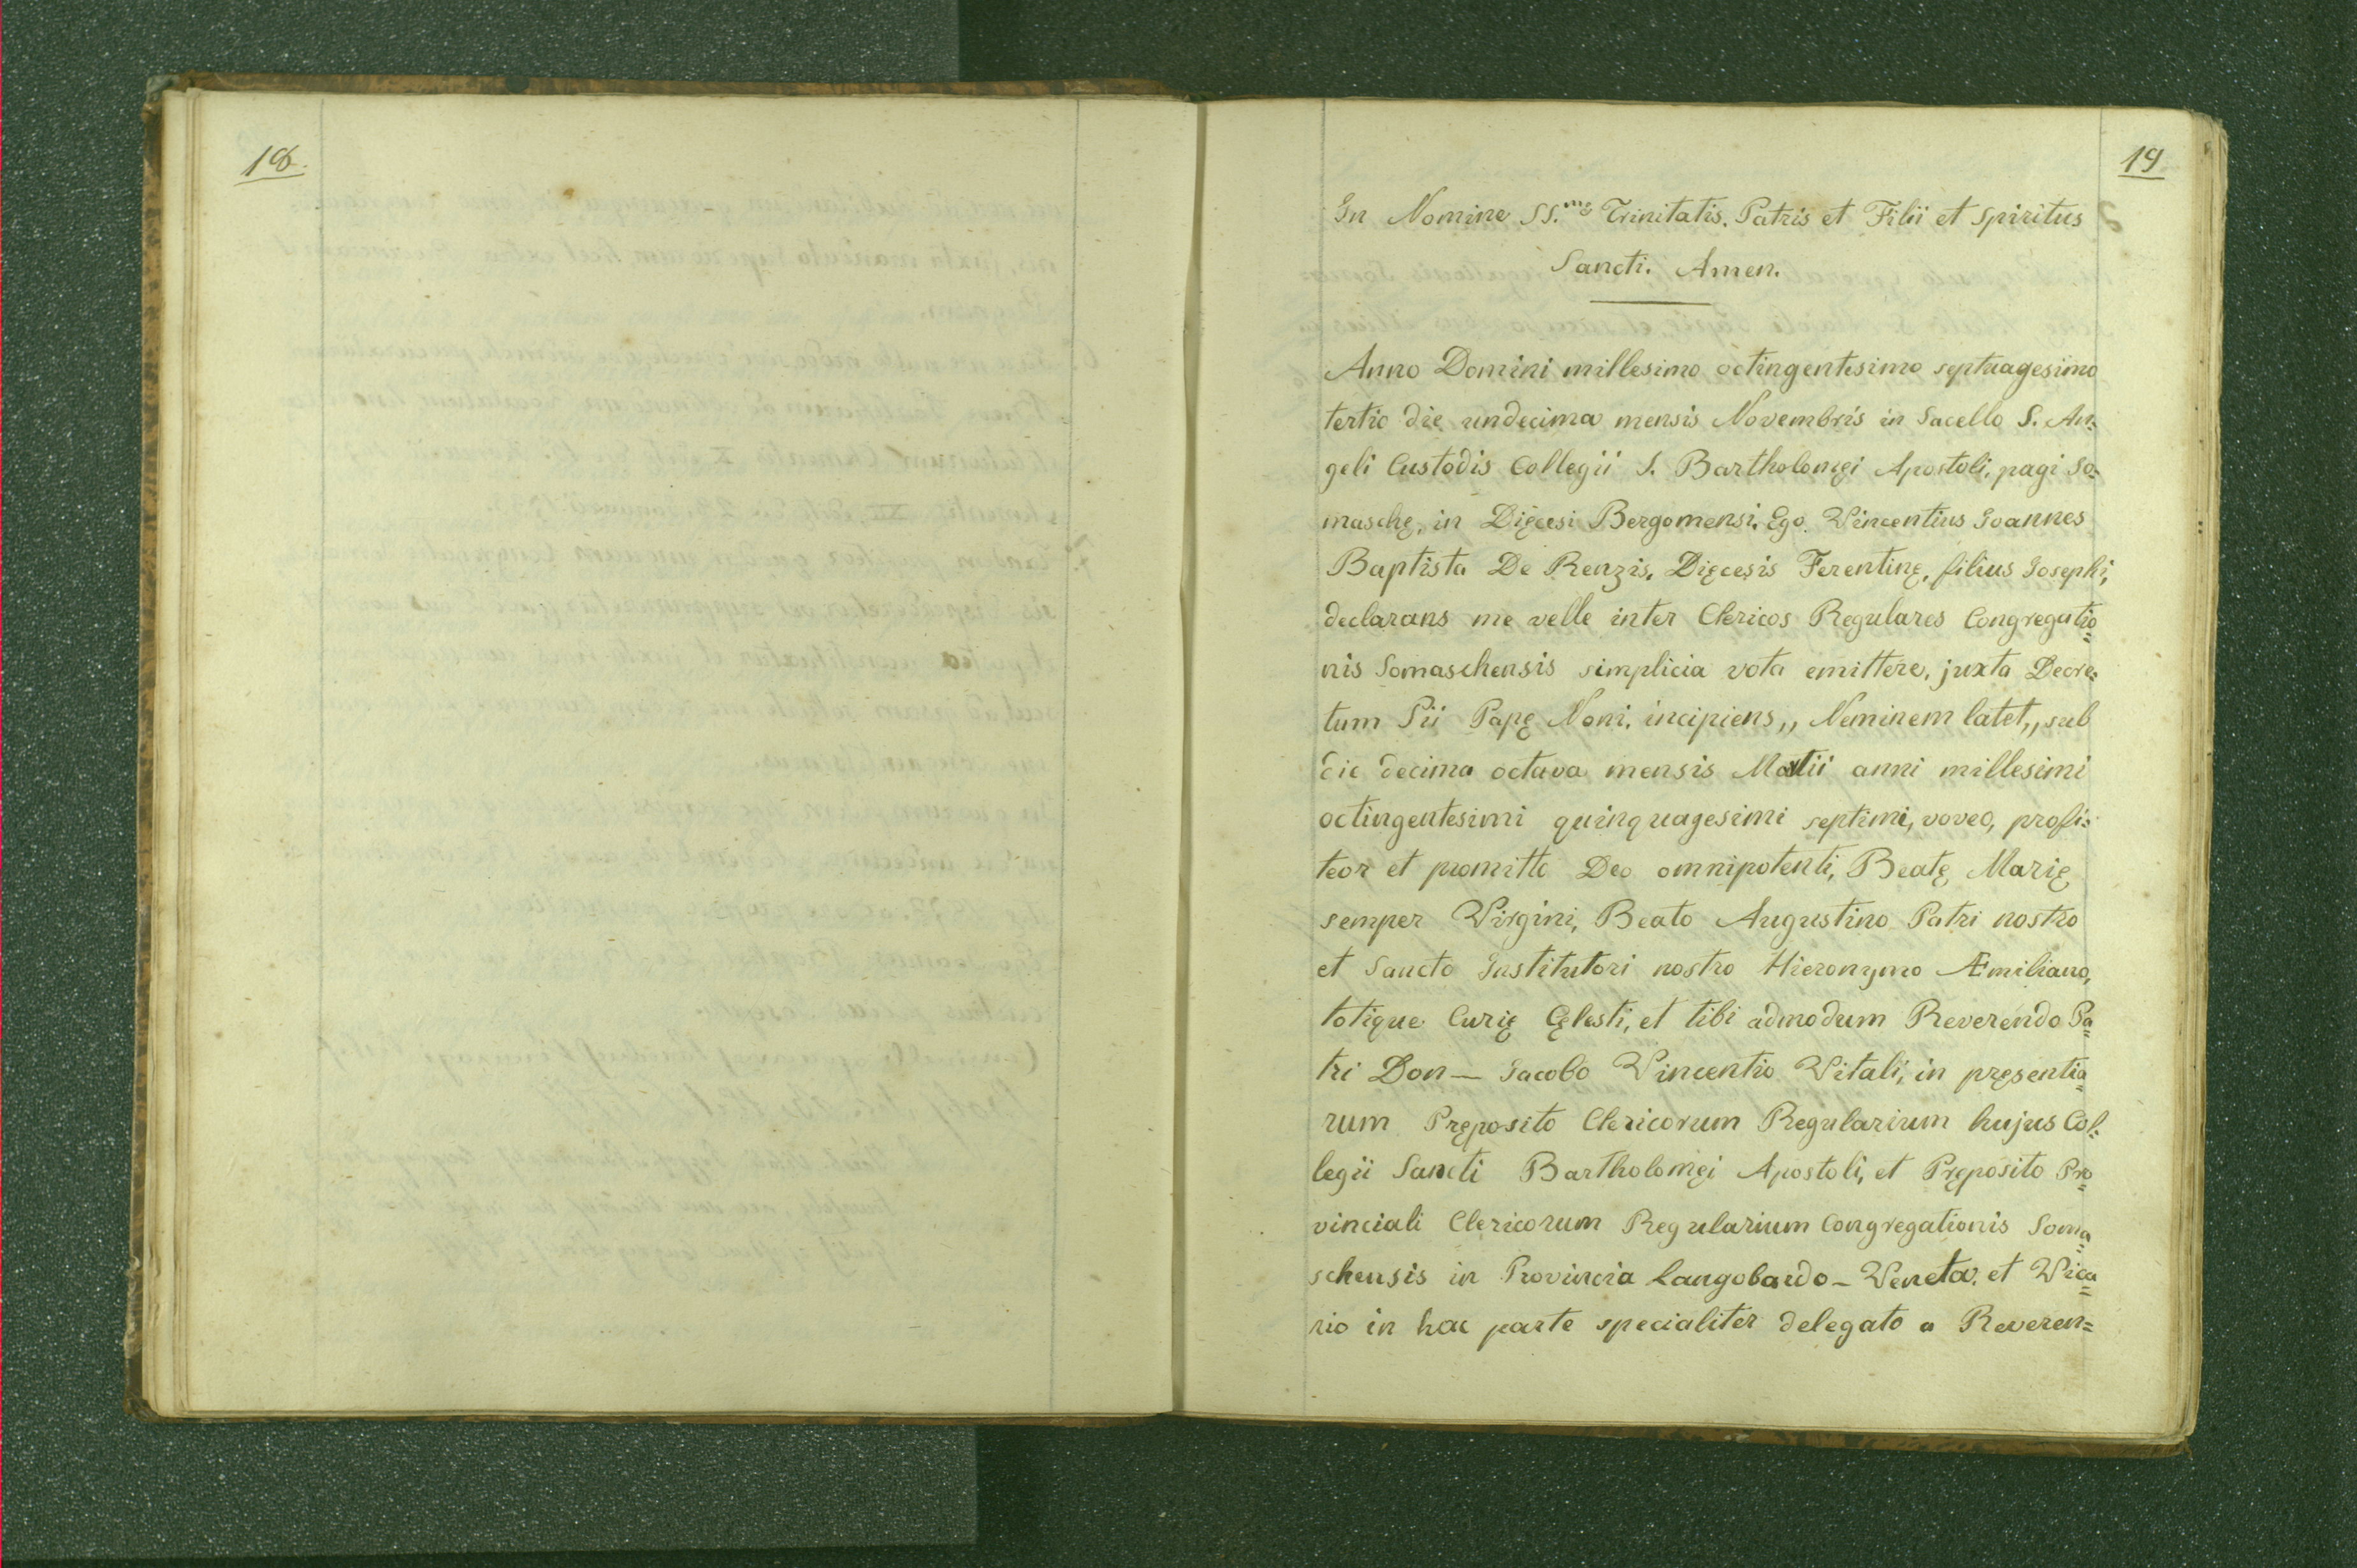 18.
19
In Nomine SS.mę Trinitatis. Patris et Filii et Spiritus
Sancti. Amen.
Anno Domini millesimo octingentesimo septuagesimo
tertio die undecima mensis Novembris in Sacello S. An:
geli Custodis Collegii S. Bartholomęi Apostoli, pagi So:
maschę, in Dięcesi Bergomensi. Ego Vincentius Joannes
Baptista De Renzis, Dięcesis Ferentinę, filius Josephi,
declarans me velle inter Clericos Regulares Congregatio=
nis Somaschensis simplicia vota emittere, juxta Decre:
tum Pii Papę Noni, incipiens „ Neminem latet „ sub
die decima octava mensis Martii anni millesimi
octingentesimi quinquagesimi septimi, voveo, profi:
teor et promitto Deo omnipotenti, Beatę Marię
semper Virgini, Beato Augustino Patri nostro
et Sancto Institutori nostro Hieronymo Æmiliano,
totique Curię Cęlesti, et tibi admodum Reverendo Pa=
tri Don — Jacobo Vincentio Vitali, in pręsentia=
rum Pręposito Clericorum Regularium hujus Col:
legii Sancti Bartholomęi Apostoli, et Pręposito Pro=
vinciali Clericorum Regularium Congregationis Soma=
schensis in Provincia Langobardo - Veneta, et Vica=
rio in hac parte specialiter delegato a Reveren=